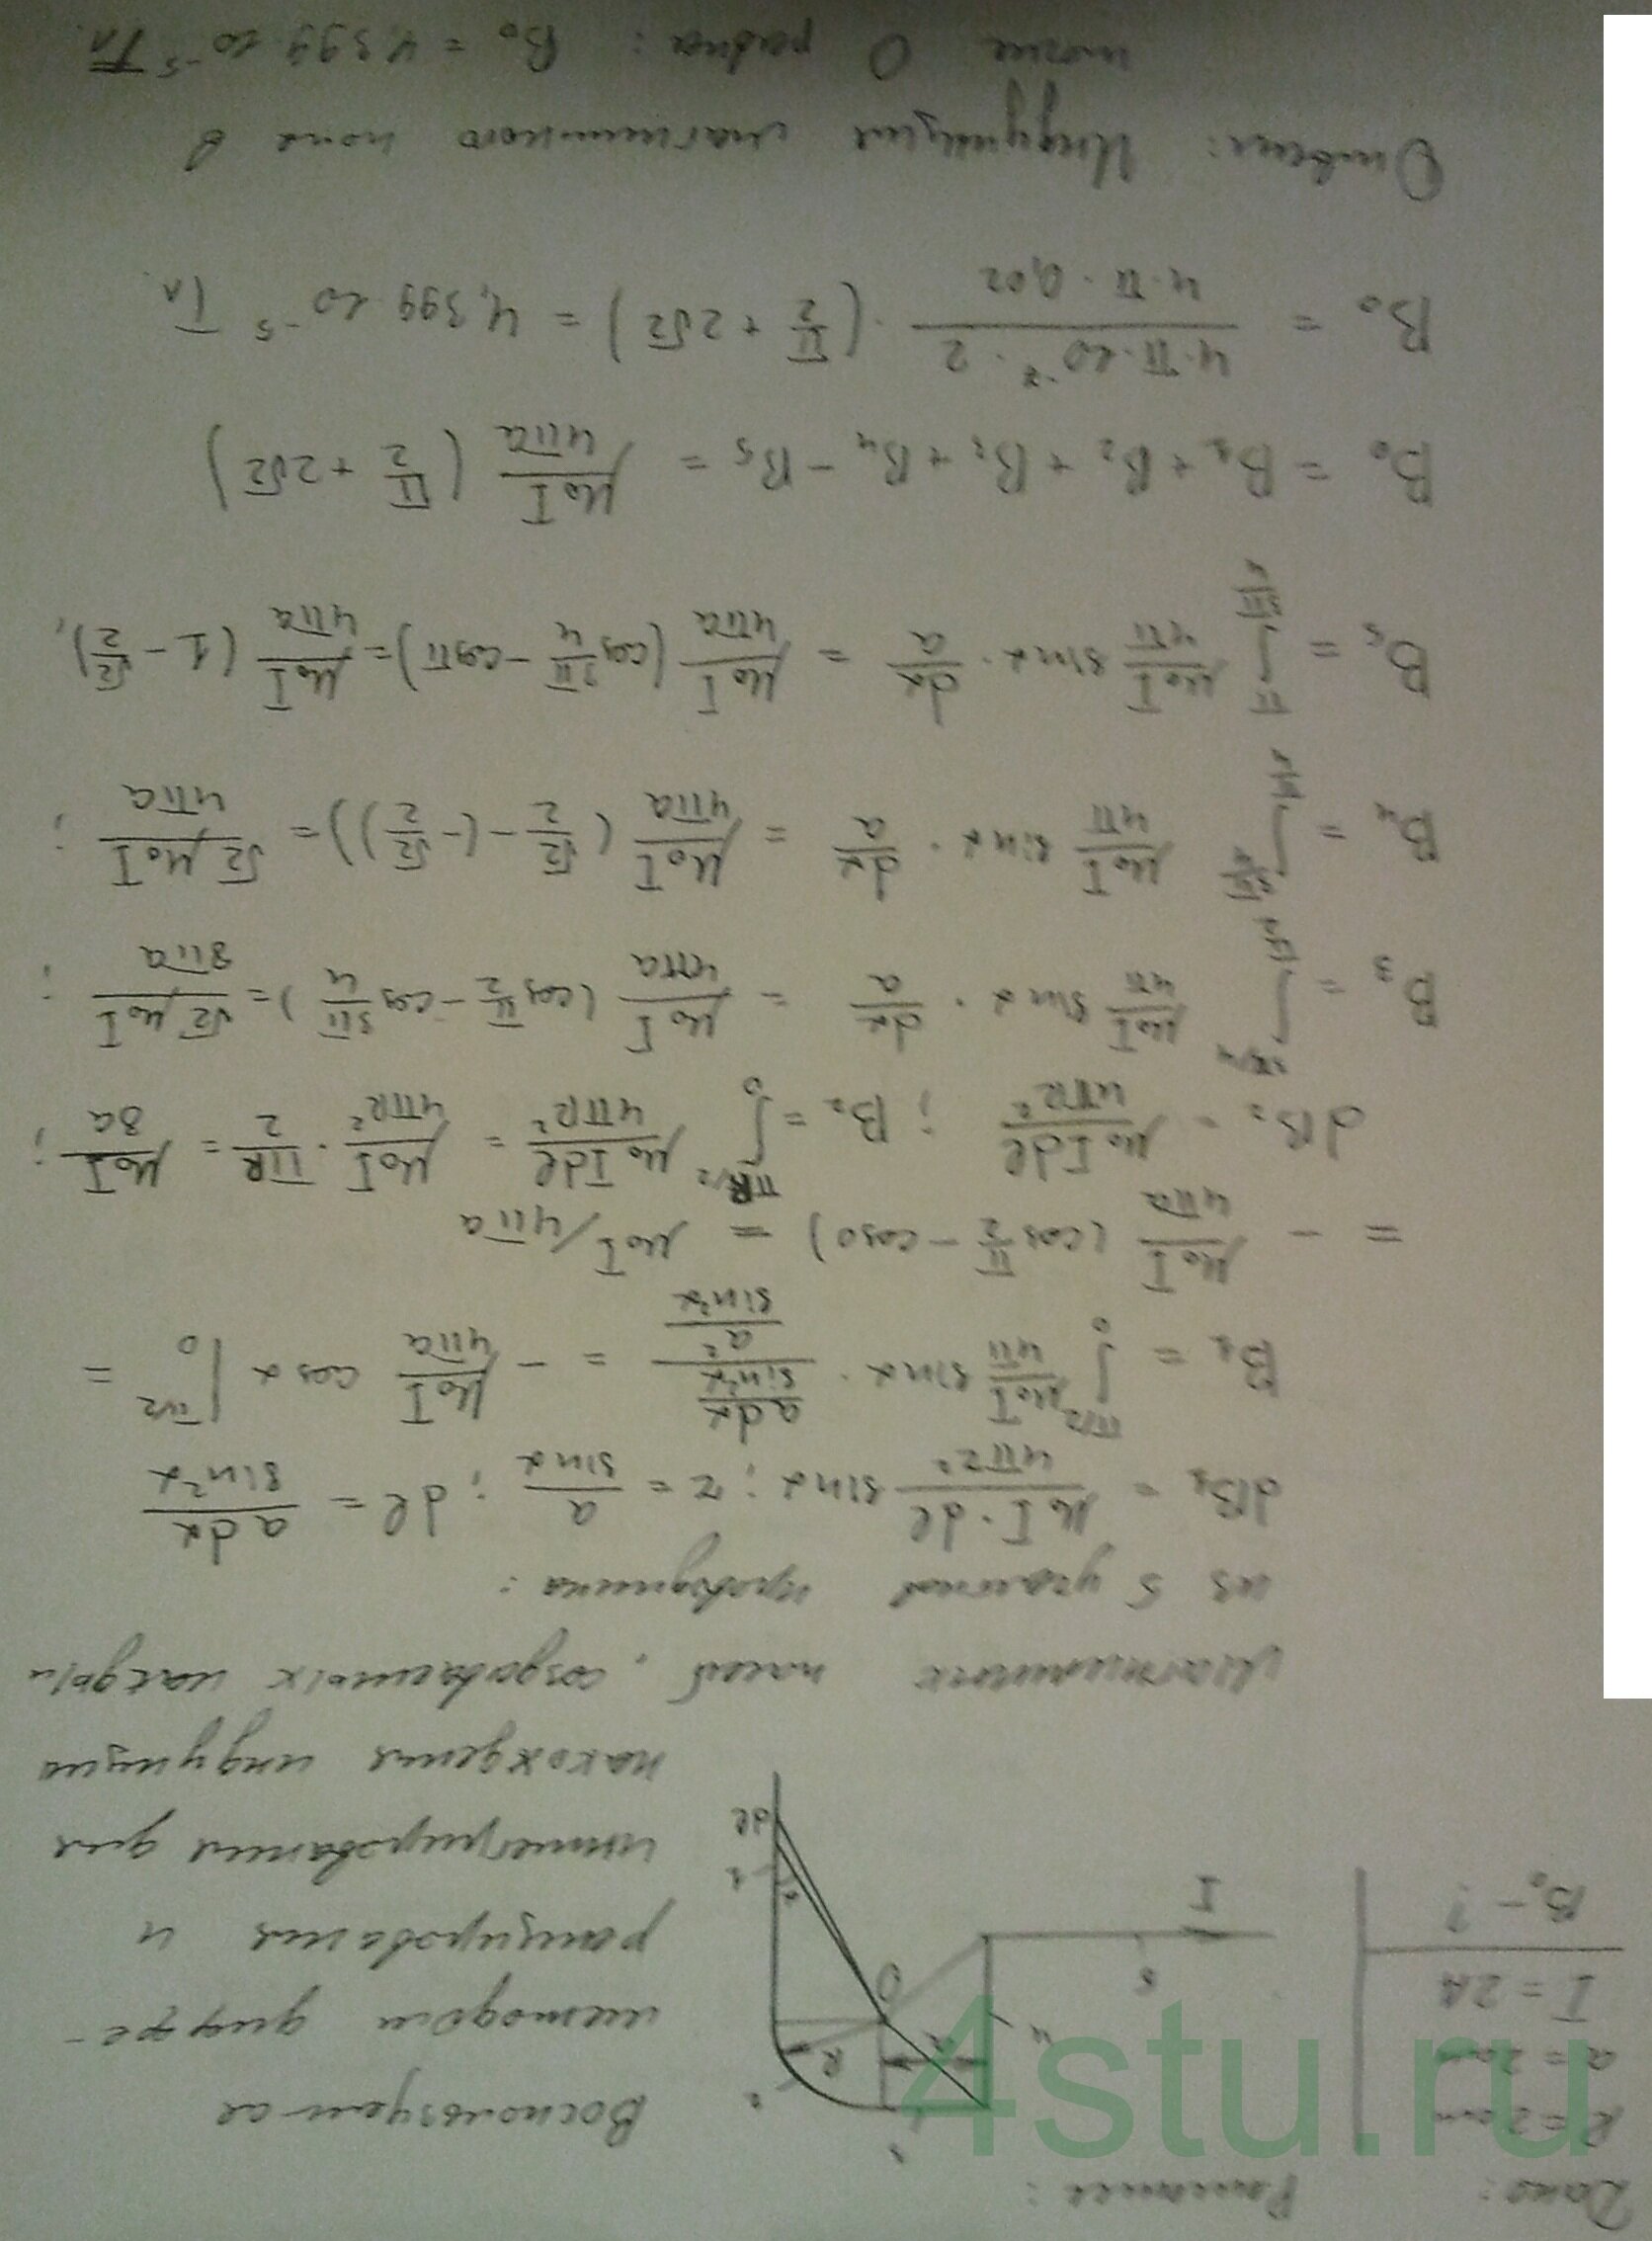 Дано:
R = 2 см
a = 2 см
I = 2A
B₀ – ?
Решение:
3
2
R
a
4
O
5
I
α
1
dl
Воспользуемся
методом диффе-
ренцирования и
интегрирования для
нахождения индукции
магнитных полей, создаваемых каждым
из 5 участков проводника:
dB₁ = μ₀I·dl/4πr² sinα; r = a/sinα; dl = a dα/sin²α
B₁ = ∫₀^(π/2) μ₀I/4π sinα · (a dα/sin²α)/(a²/sin²α) = – μ₀I/4πa cosα |₀^(π/2) =
= – μ₀I/4πa (cos π/2 – cos0) = μ₀I/4πa
dB₂ = μ₀Idl/4πR²; B₂ = ∫₀^(πR/2) μ₀Idl/4πR² = μ₀I/4πR² · πR/2 = μ₀I/8a;
B₃ = ∫_(π/2)^(3π/4) μ₀I/4π sinα · dα/a = μ₀I/4πa (cos π/2 – cos 3π/4) = √2 μ₀I/8πa;
B₄ = ∫_(π/4)^(3π/4) μ₀I/4π sinα · dα/a = μ₀I/4πa (√2/2 – (–√2/2)) = √2 μ₀I/4πa;
B₅ = ∫_(3π/4)^π μ₀I/4π sinα · dα/a = μ₀I/4πa (cos 3π/4 – cosπ) = μ₀I/4πa (1 – √2/2);
B₀ = B₁ + B₂ + B₃ + B₄ – B₅ = μ₀I/4πa (π/2 + 2√2)
B₀ = 4·π·10⁻⁷·2/4·π·0,02 · (π/2 + 2√2) = 4,399·10⁻⁵ Тл.
Ответ: Индукция магнитного поля в
точке O равна: B₀ = 4,399·10⁻⁵ Тл.
4stu.ru